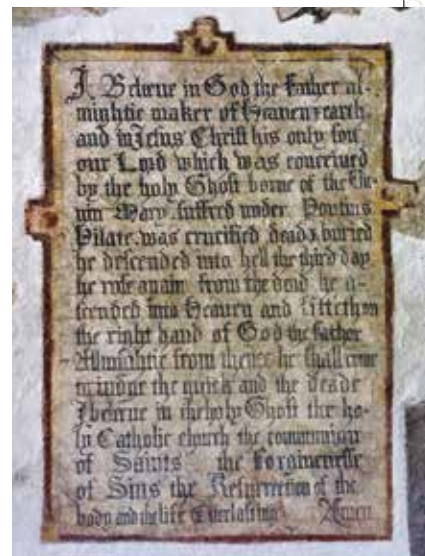 I Beleeue in God the Father al-
mightie maker of Heauen & earth
and in Jesus Christ his only son
our Lord which was conceiued
by the holy Ghost borne of the Vir-
gin Mary, suffred under Pontius
Pilate, was crucified dead & buried
he descended into hell the third day
he rose again from the dead he a-
scended into Heauen and sitteth on
the right hand of God the father
Allmightie from thence he shall come
to iudge the quick and the deade
I beleeue in the holy Ghost the ho-
ly Catholic church the communion
of Saints the forgiuenesse
of Sins the Resurrection of the
body and the life Everlasting Amen